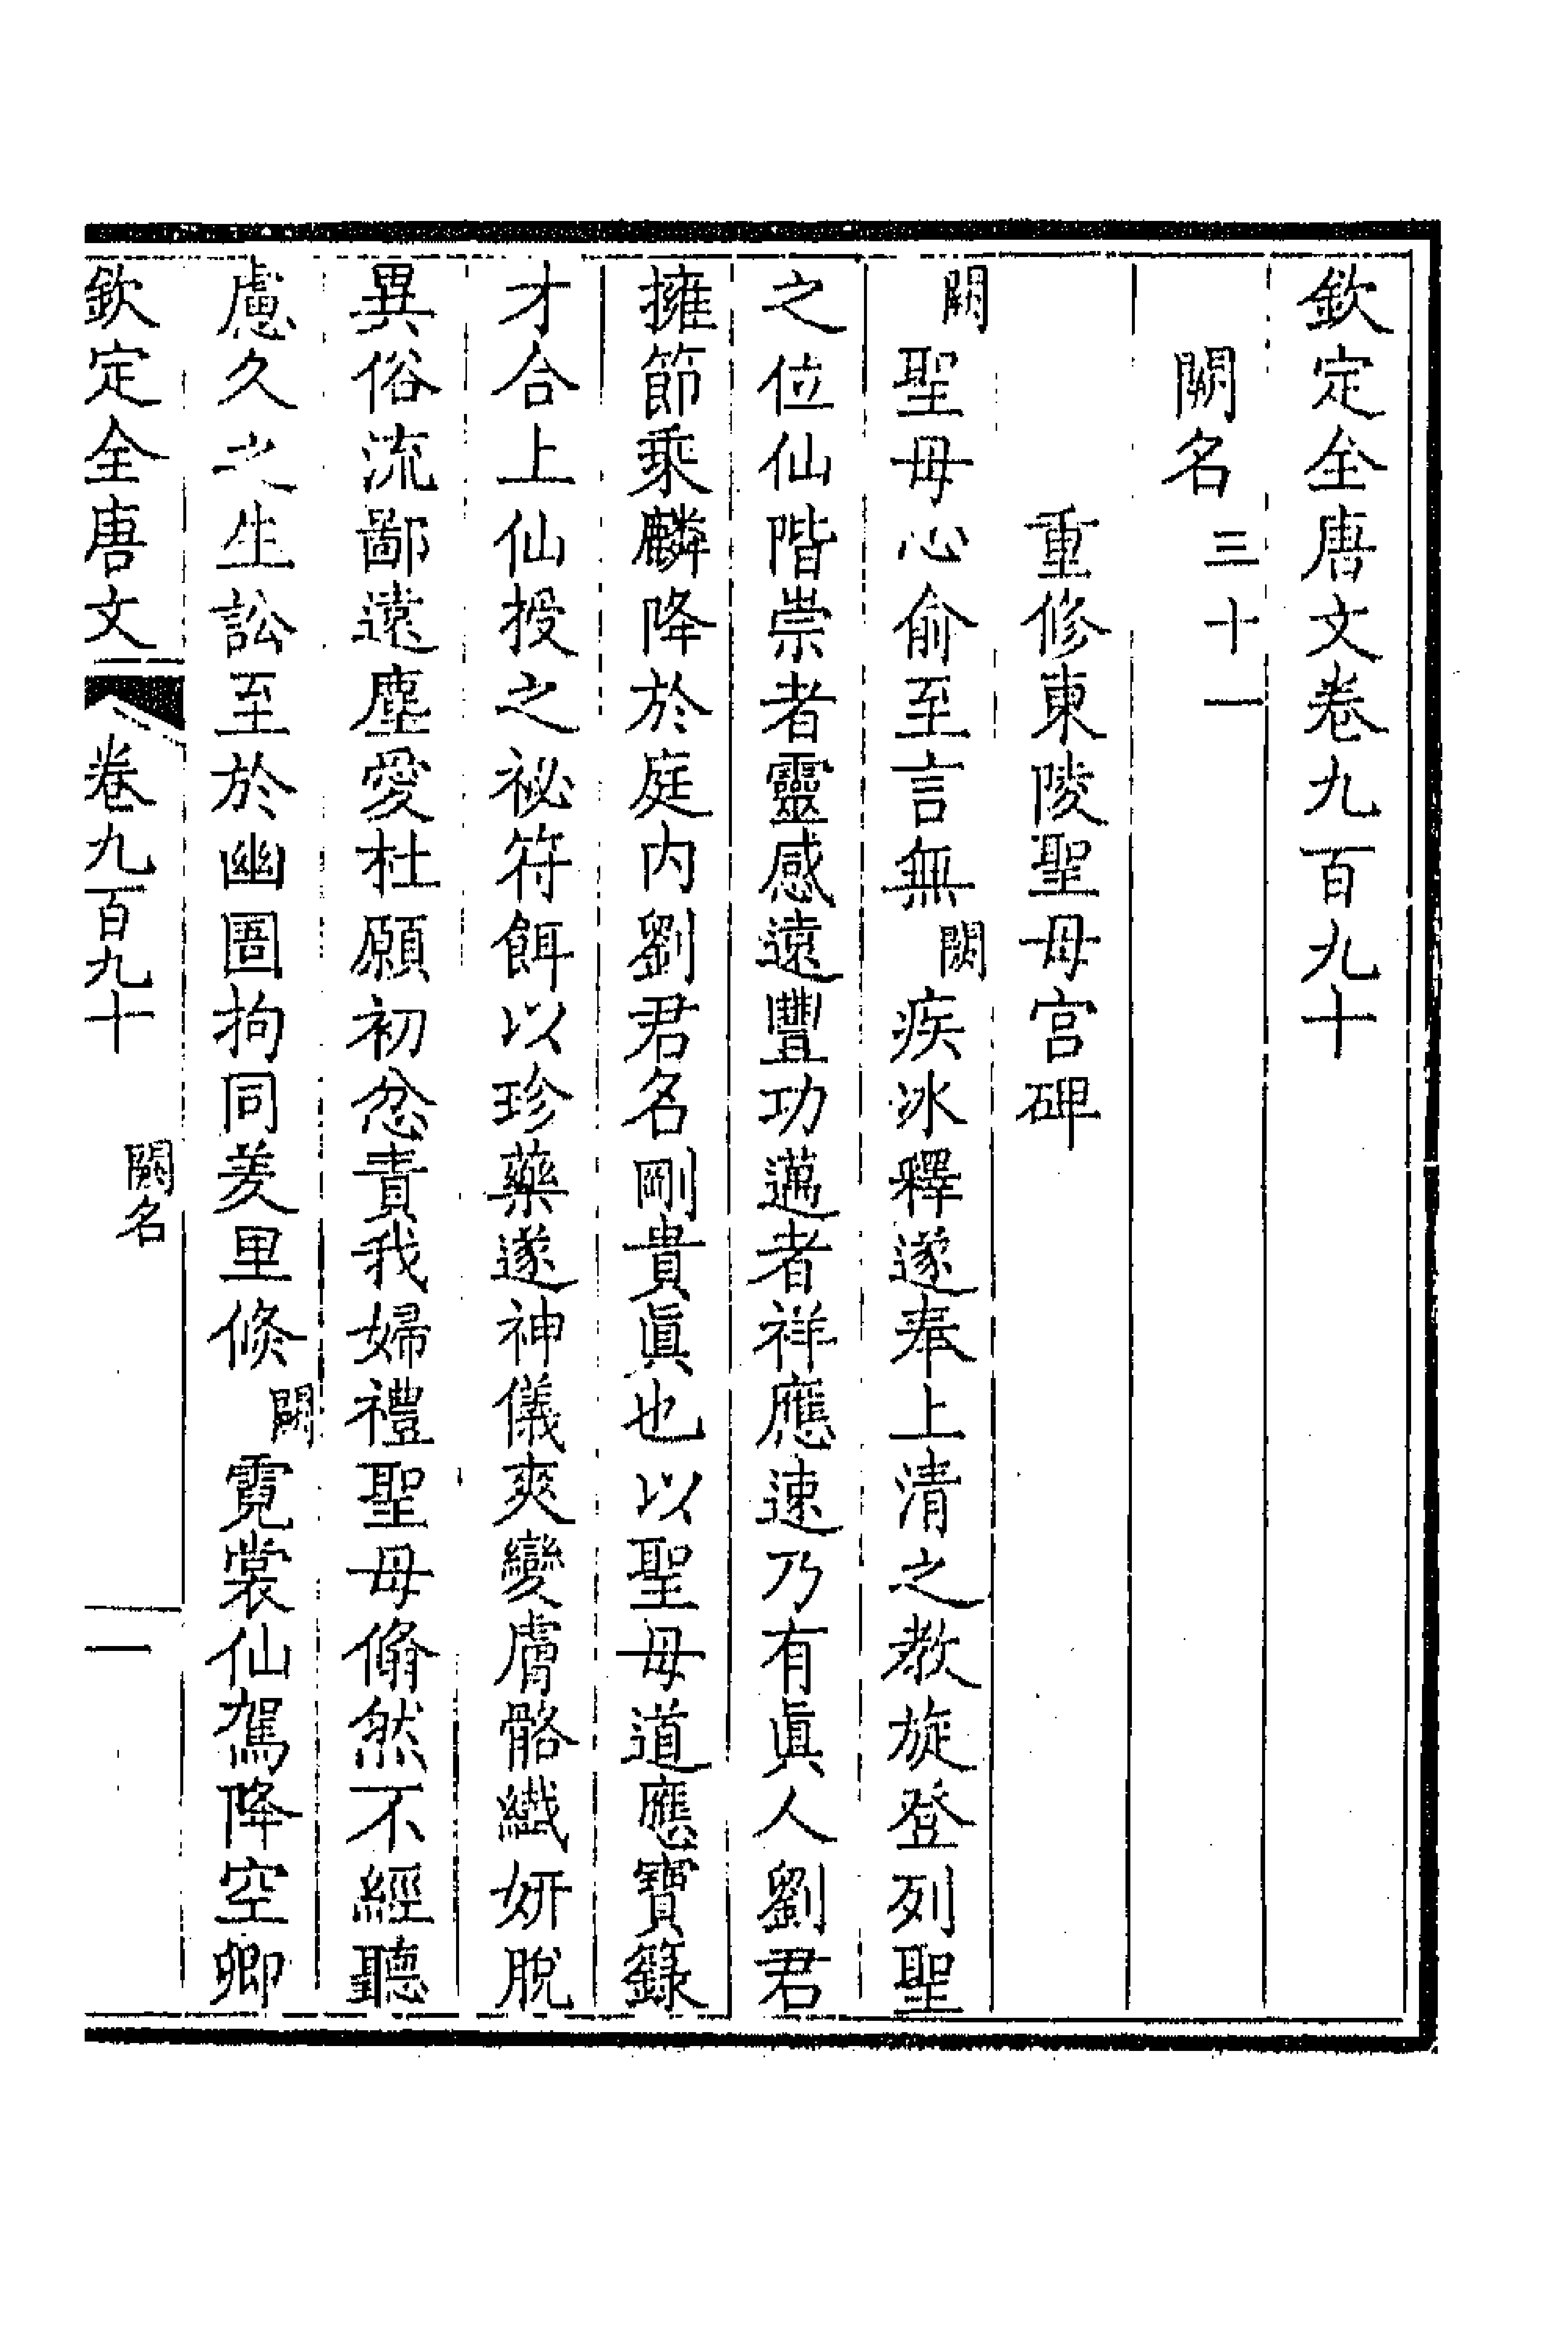 欽定全唐文卷九百九十
闕名三十一
重修東陵聖母宫碑
闕聖母心俞至言無闕疾冰釋遂奉上清之教旋登列聖
之位仙階崇者靈感遠豐功邁者祥應速乃有眞人劉君
擁節乘麟降於庭内劉君名剛貴眞也以聖母道應寶籙
才合上仙授之祕符餌以珍藥遂神儀爽變膚骼纖妍脫
異俗流鄙遠塵愛杜願初忿責我婦禮聖母翛然不經聽
慮久之生訟至於幽圄拘同羑里倐闕霓裳仙駕降空卿
欽定全唐文 卷九百九十 闕名 一